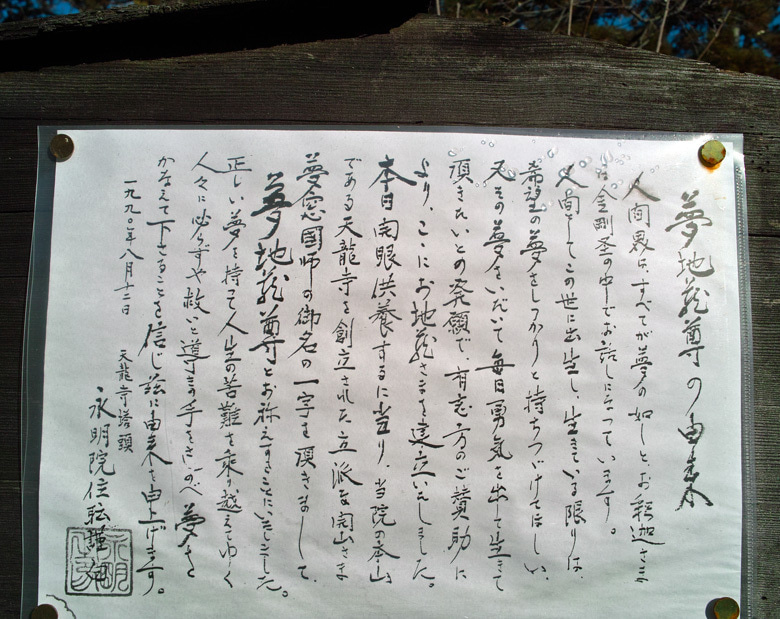 夢地蔵尊の由来
人間界は、すべてが夢の如しと、お釈迦さま
は金剛圣の中でお話しになっています。
人間としてこの世に出生し、生きている限りは、
希望の夢をしっかりと持ちつづけてほしい、
又その夢をいだいて毎日勇気を出して生きて
頂きたいとの発願で、有志方のご賛助に
より、ここにお地蔵さまを建立いたしました。
本日開眼供養するに当り、当院の本山
である天龍寺を創立された立派な開山さま
夢窓国師の御名の一字を頂きまして、
夢地蔵尊とお称えすることにいたしました。
正しい夢を持って人生の苦難を乗り越えてゆく
人々に必らずや救いと導きの手をさしのべ夢を
かなえて下さることを信じ茲に由来を申上げます。
一九九〇年八月十二日
天龍寺塔頭
永明院住職謹書